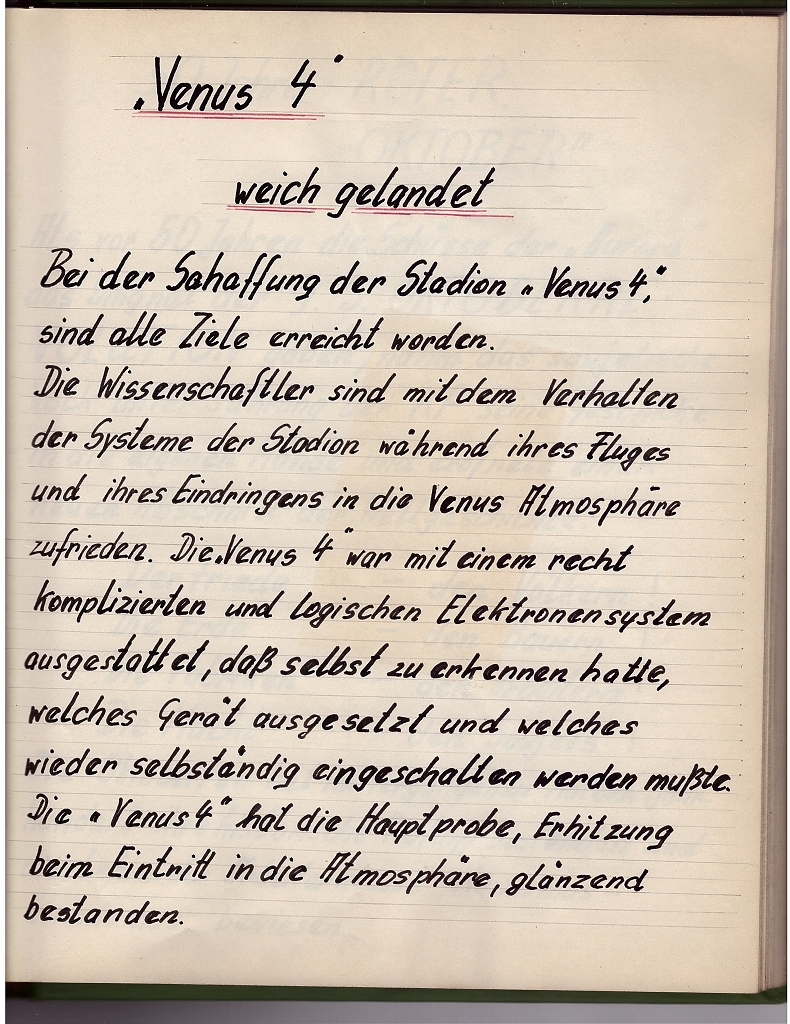 „Venus 4"
weich gelandet
Bei der Sahaffung der Stadion „Venus 4",
sind alle Ziele erreicht worden.
Die Wissenschaftler sind mit dem Verhalten
der Systeme der Stadion während ihres Fluges
und ihres Eindringens in die Venus Atmosphäre
zufrieden. Die „Venus 4" war mit einem recht
komplizierten und logischen Elektronensystem
ausgestattet, daß selbst zu erkennen hatte,
welches Gerät ausgesetzt und welches
wieder selbständig eingeschalten werden mußte.
Die „Venus 4" hat die Hauptprobe, Erhitzung
beim Eintritt in die Atmosphäre, glänzend
bestanden.